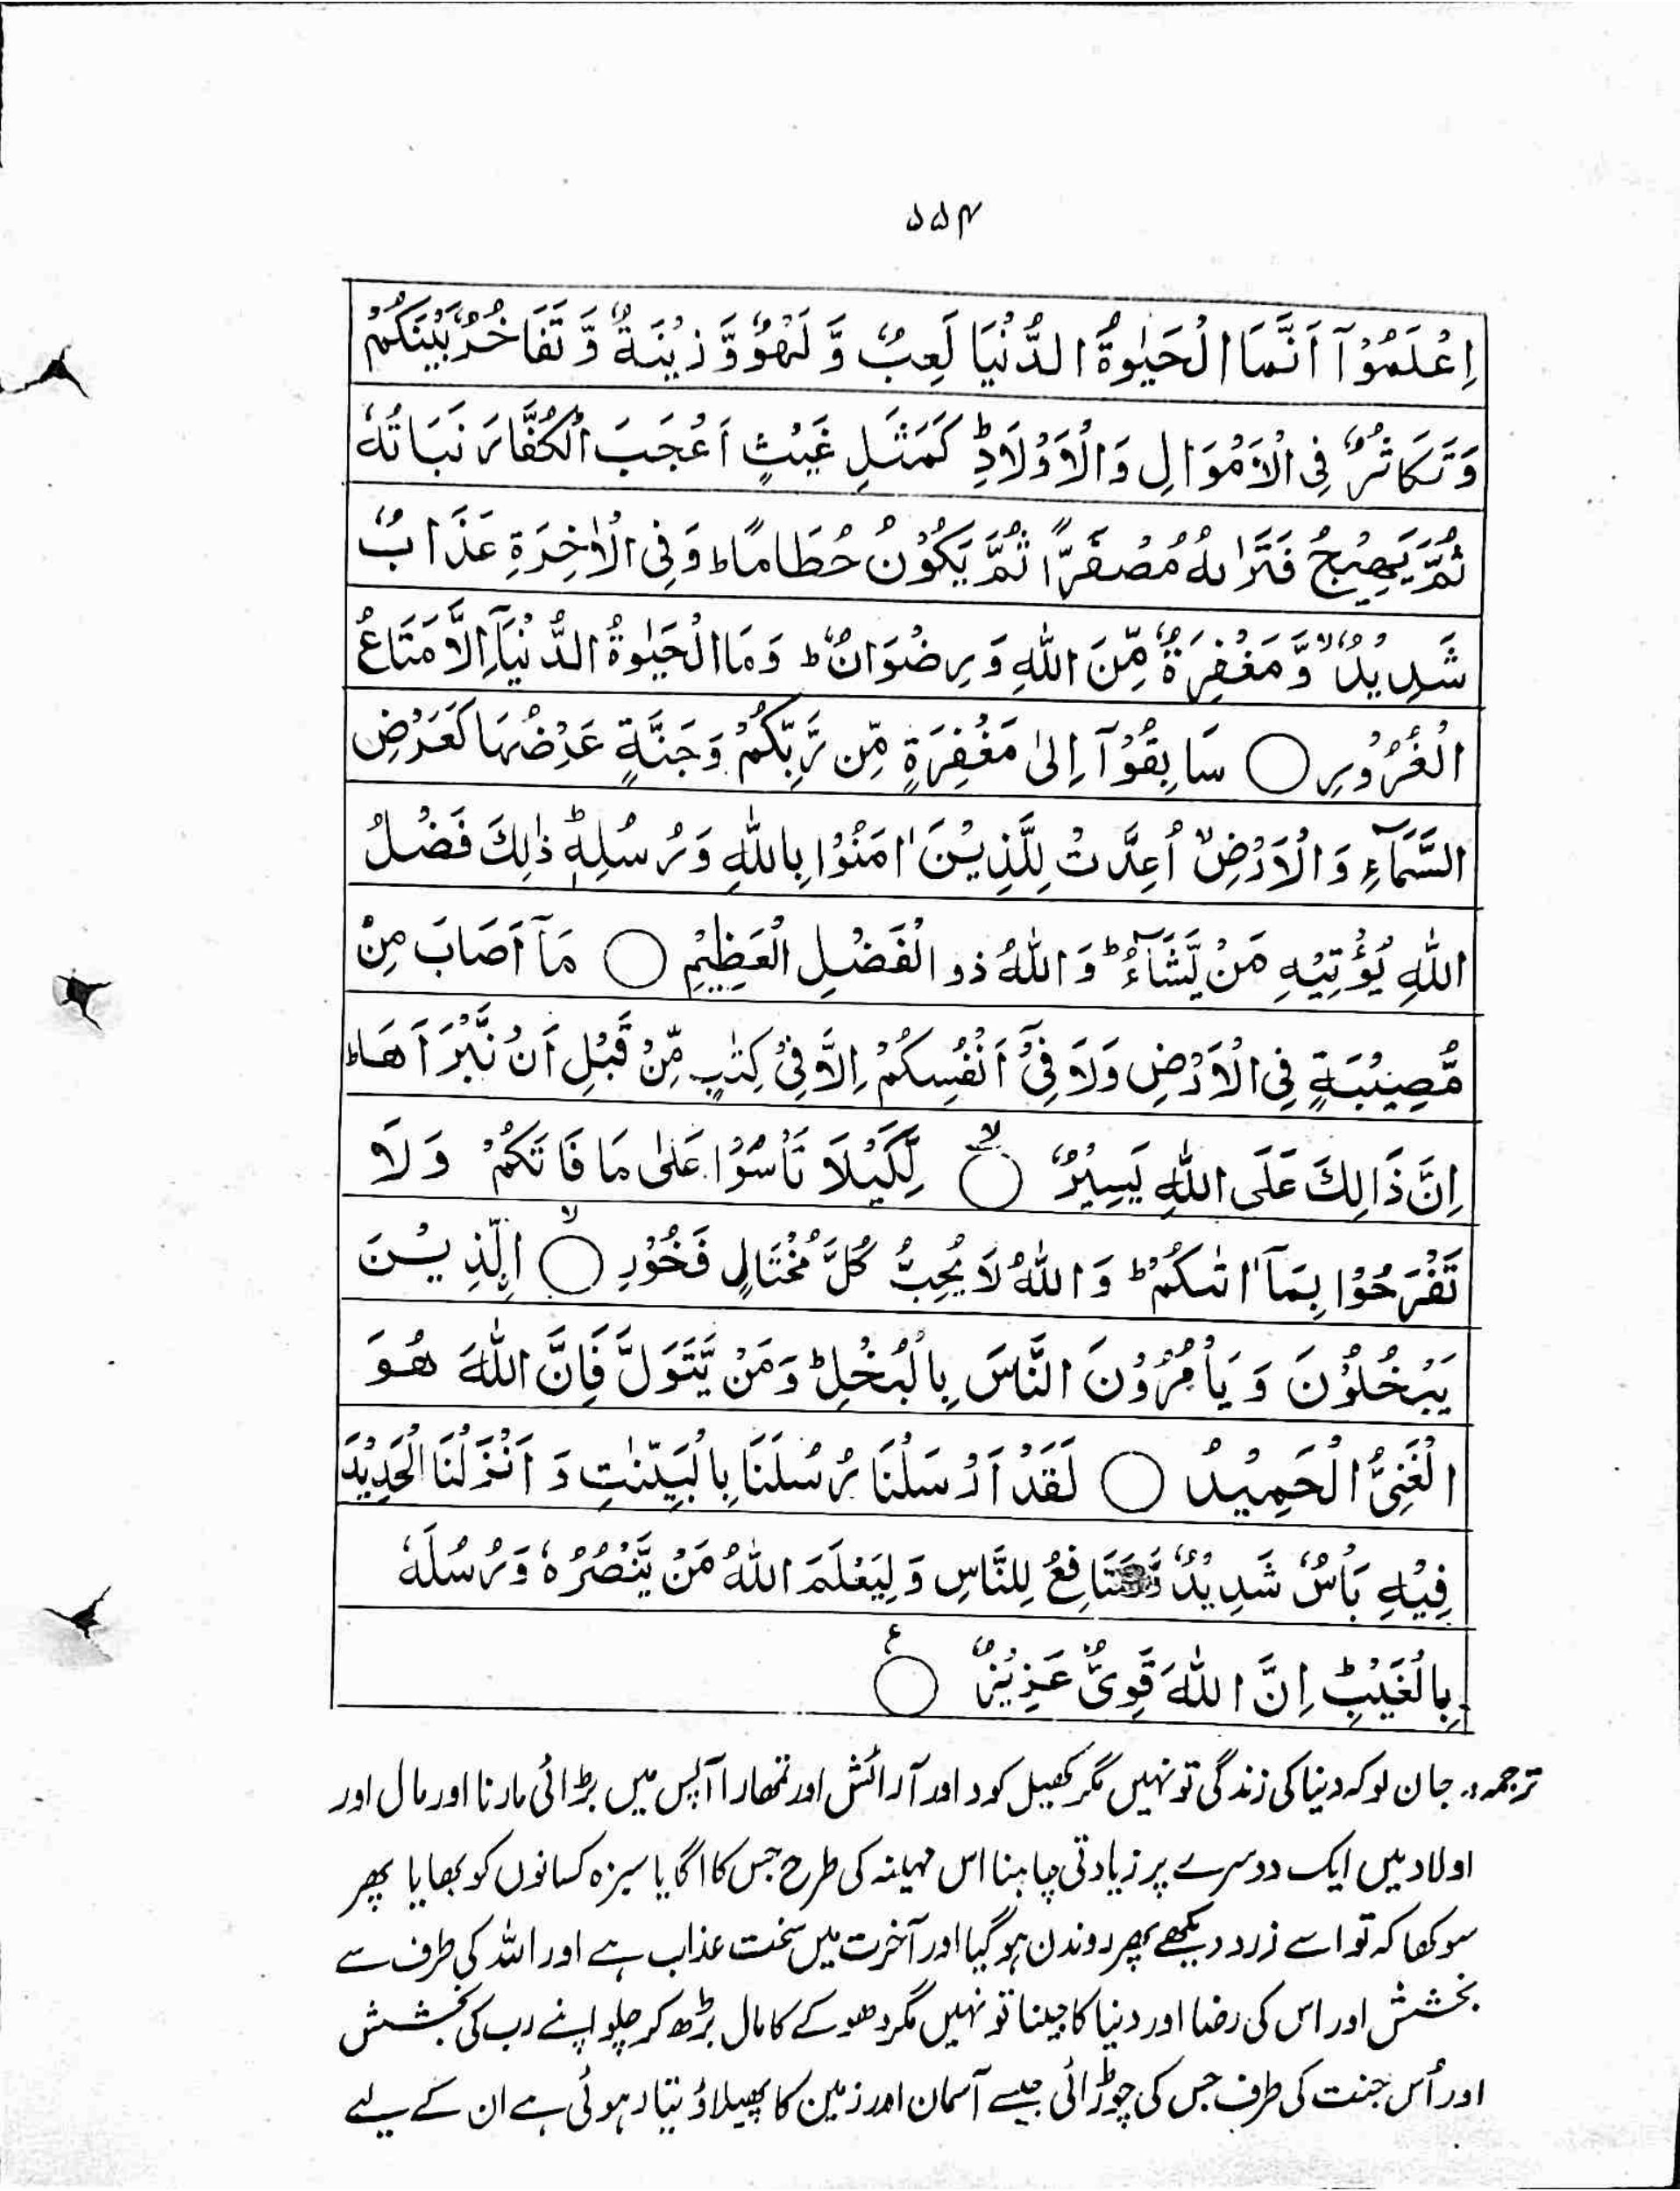 ۵۵۴
اِعْلَمُوْآ اَنَّمَا الْحَيٰوةُ الدُّنْيَا لَعِبٌ وَّ لَهْوٌ وَّ زِيْنَةٌ وَّ تَفَاخُرٌ بَيْنَكُمْ
وَتَكَاثُرٌ فِى الْاَمْوَالِ وَالْاَوْلَادِؕ كَمَثَلِ غَيْثٍ اَعْجَبَ الْكُفَّارَ نَبَاتُهٗ
ثُمَّ يَهِيْجُ فَتَرَاىهُ مُصْفَرًّا ثُمَّ يَكُوْنُ حُطَامًاؕ وَفِى الْاٰخِرَةِ عَذَابٌ
شَدِيْدٌۙ وَّمَغْفِرَةٌ مِّنَ اللّٰهِ وَرِضْوَانٌؕ وَمَا الْحَيٰوةُ الدُّنْيَآ اِلَّا مَتَاعُ
الْغُرُوْرِ ○ سَابِقُوْآ اِلىٰ مَغْفِرَةٍ مِّن رَّبِّكُمْ وَجَنَّةٍ عَرْضُهَا كَعَرْضِ
السَّمَآءِ وَالْاَرْضِۙ اُعِدَّتْ لِلَّذِيْنَ اٰمَنُوْا بِاللّٰهِ وَرُسُلِهٖؕ ذٰلِكَ فَضْلُ
اللّٰهِ يُؤْتِيْهِ مَنْ يَّشَآءُؕ وَاللّٰهُ ذو الْفَضْلِ الْعَظِيْمِ ○ مَآ اَصَابَ مِنْ
مُّصِيْبَةٍ فِى الْاَرْضِ وَلَا فِىْٓ اَنْفُسِكُمْ اِلَّا فِىْ كِتٰبٍ مِّنْ قَبْلِ اَنْ نَّبْرَاَهَاؕ
اِنَّ ذَالِكَ عَلَى اللّٰهِ يَسِيْرٌ ○ۙ لِّكَيْلَا تَاْسَوْا عَلىٰ مَا فَاتَكُمْ وَلَا
تَفْرَحُوْا بِمَآ اٰتٰىكُمْؕ وَاللّٰهُ لَا يُحِبُّ كُلَّ مُخْتَالٍ فَخُوْرِ ○ۙ اِلَّذِيْنَ
يَبْخُلُوْنَ وَيَاْمُرُوْنَ النَّاسَ بِالْبُخْلِؕ وَمَنْ يَّتَوَلَّ فَاِنَّ اللّٰهَ هُوَ
الْغَنِىُّ الْحَمِيْدُ ○ لَقَدْ اَرْسَلْنَا رُسُلَنَا بِالْبَيِّنٰتِ وَ اَنْزَلْنَا الْحَدِيْدَ
فِيْهِ بَاْسٌ شَدِيْدٌ وَّمَنَافِعُ لِلنَّاسِ وَلِيَعْلَمَ اللّٰهُ مَنْ يَّنْصُرُهٗ وَرُسُلَهٗ
بِالْغَيْبِؕ اِنَّ اللّٰهَ قَوِىٌّ عَزِيْزٌ ○ع
ترجمہ:۔ جان لو کہ دنیا کی زندگی تو نہیں مگر کھیل کود اور آرائش اور تمھارا آپس میں بڑائی مارنا اور مال اور
اولاد میں ایک دوسرے پر زیادتی چاہنا اس مہینہ کی طرح جس کا اگایا سبزہ کسانوں کو بھایا پھر
سوکھا کہ تو اسے زرد دیکھے پھر روندن ہو گیا اور آخرت میں سخت عذاب ہے اور اللہ کی طرف سے
بخشش اور اس کی رضا اور دنیا کا جینا تو نہیں مگر دھوکے کا مال بڑھ کر چلو اپنے رب کی بخشش
اور اُس جنت کی طرف جس کی چوڑائی جیسے آسمان اور زمین کا پھیلاؤ تیار ہوئی ہے ان کے لیے